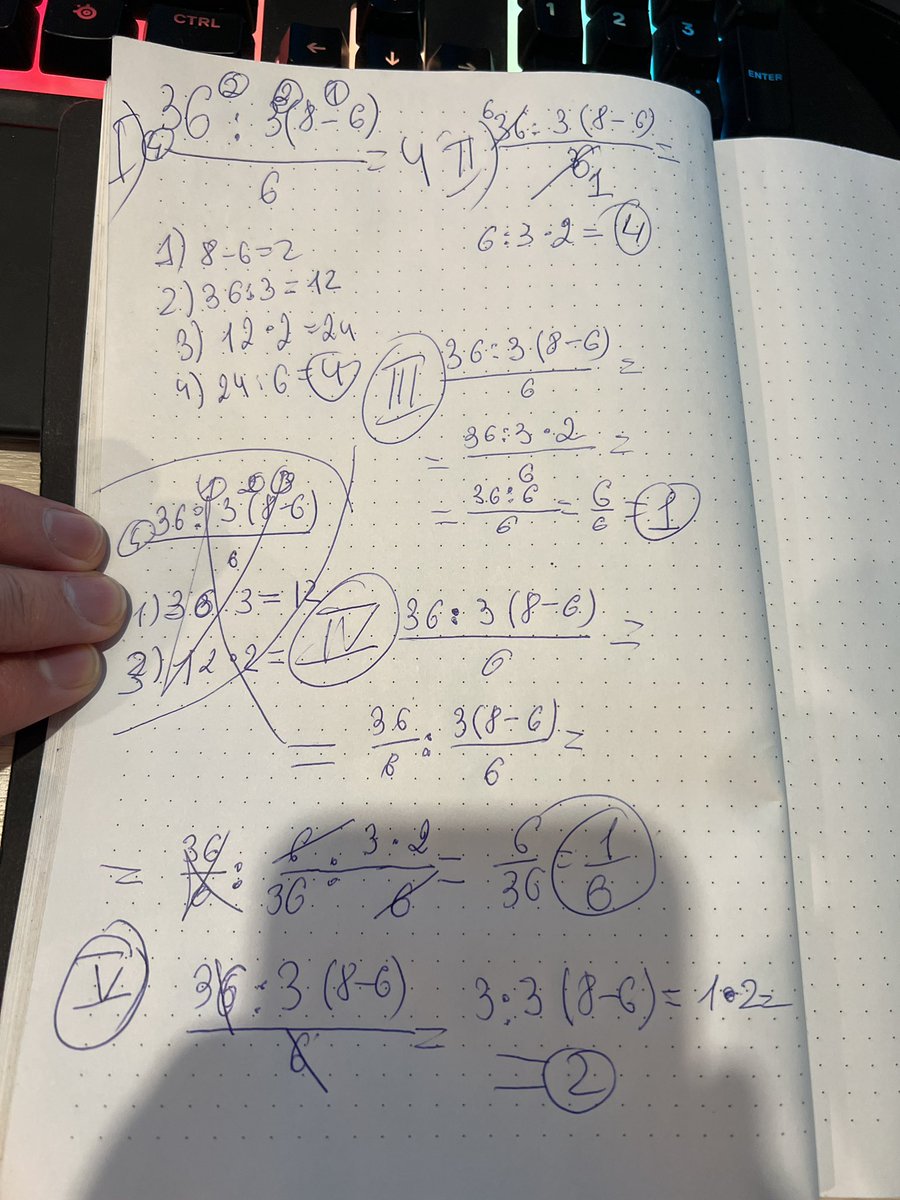 CTRL
←
↓
→
1
2
3
ENTER
I) 36 : 3(8-6) / 6 = 4
② ② ①
④
1) 8-6=2
2) 36:3=12
3) 12·2=24
4) 24:6=4
II) 36:3(8-6) / 6 =
6
1
6:3·2=4
III 36:3·(8-6) / 6 =
= 36:3·2 / 6 =
= 36:6 / 6 = 6/6 = 1
36 : 3(8-6) / 6
1) 36 3=12
12·2=
IV 36:3(8-6) / 6 =
= 36/6 : 3(8-6)/6 =
= 36/6 : 6/36 : 3·2/6 = 6/36 = 1/6
V 36:3(8-6) / 6 = 3:3(8-6)=1·2=
=2